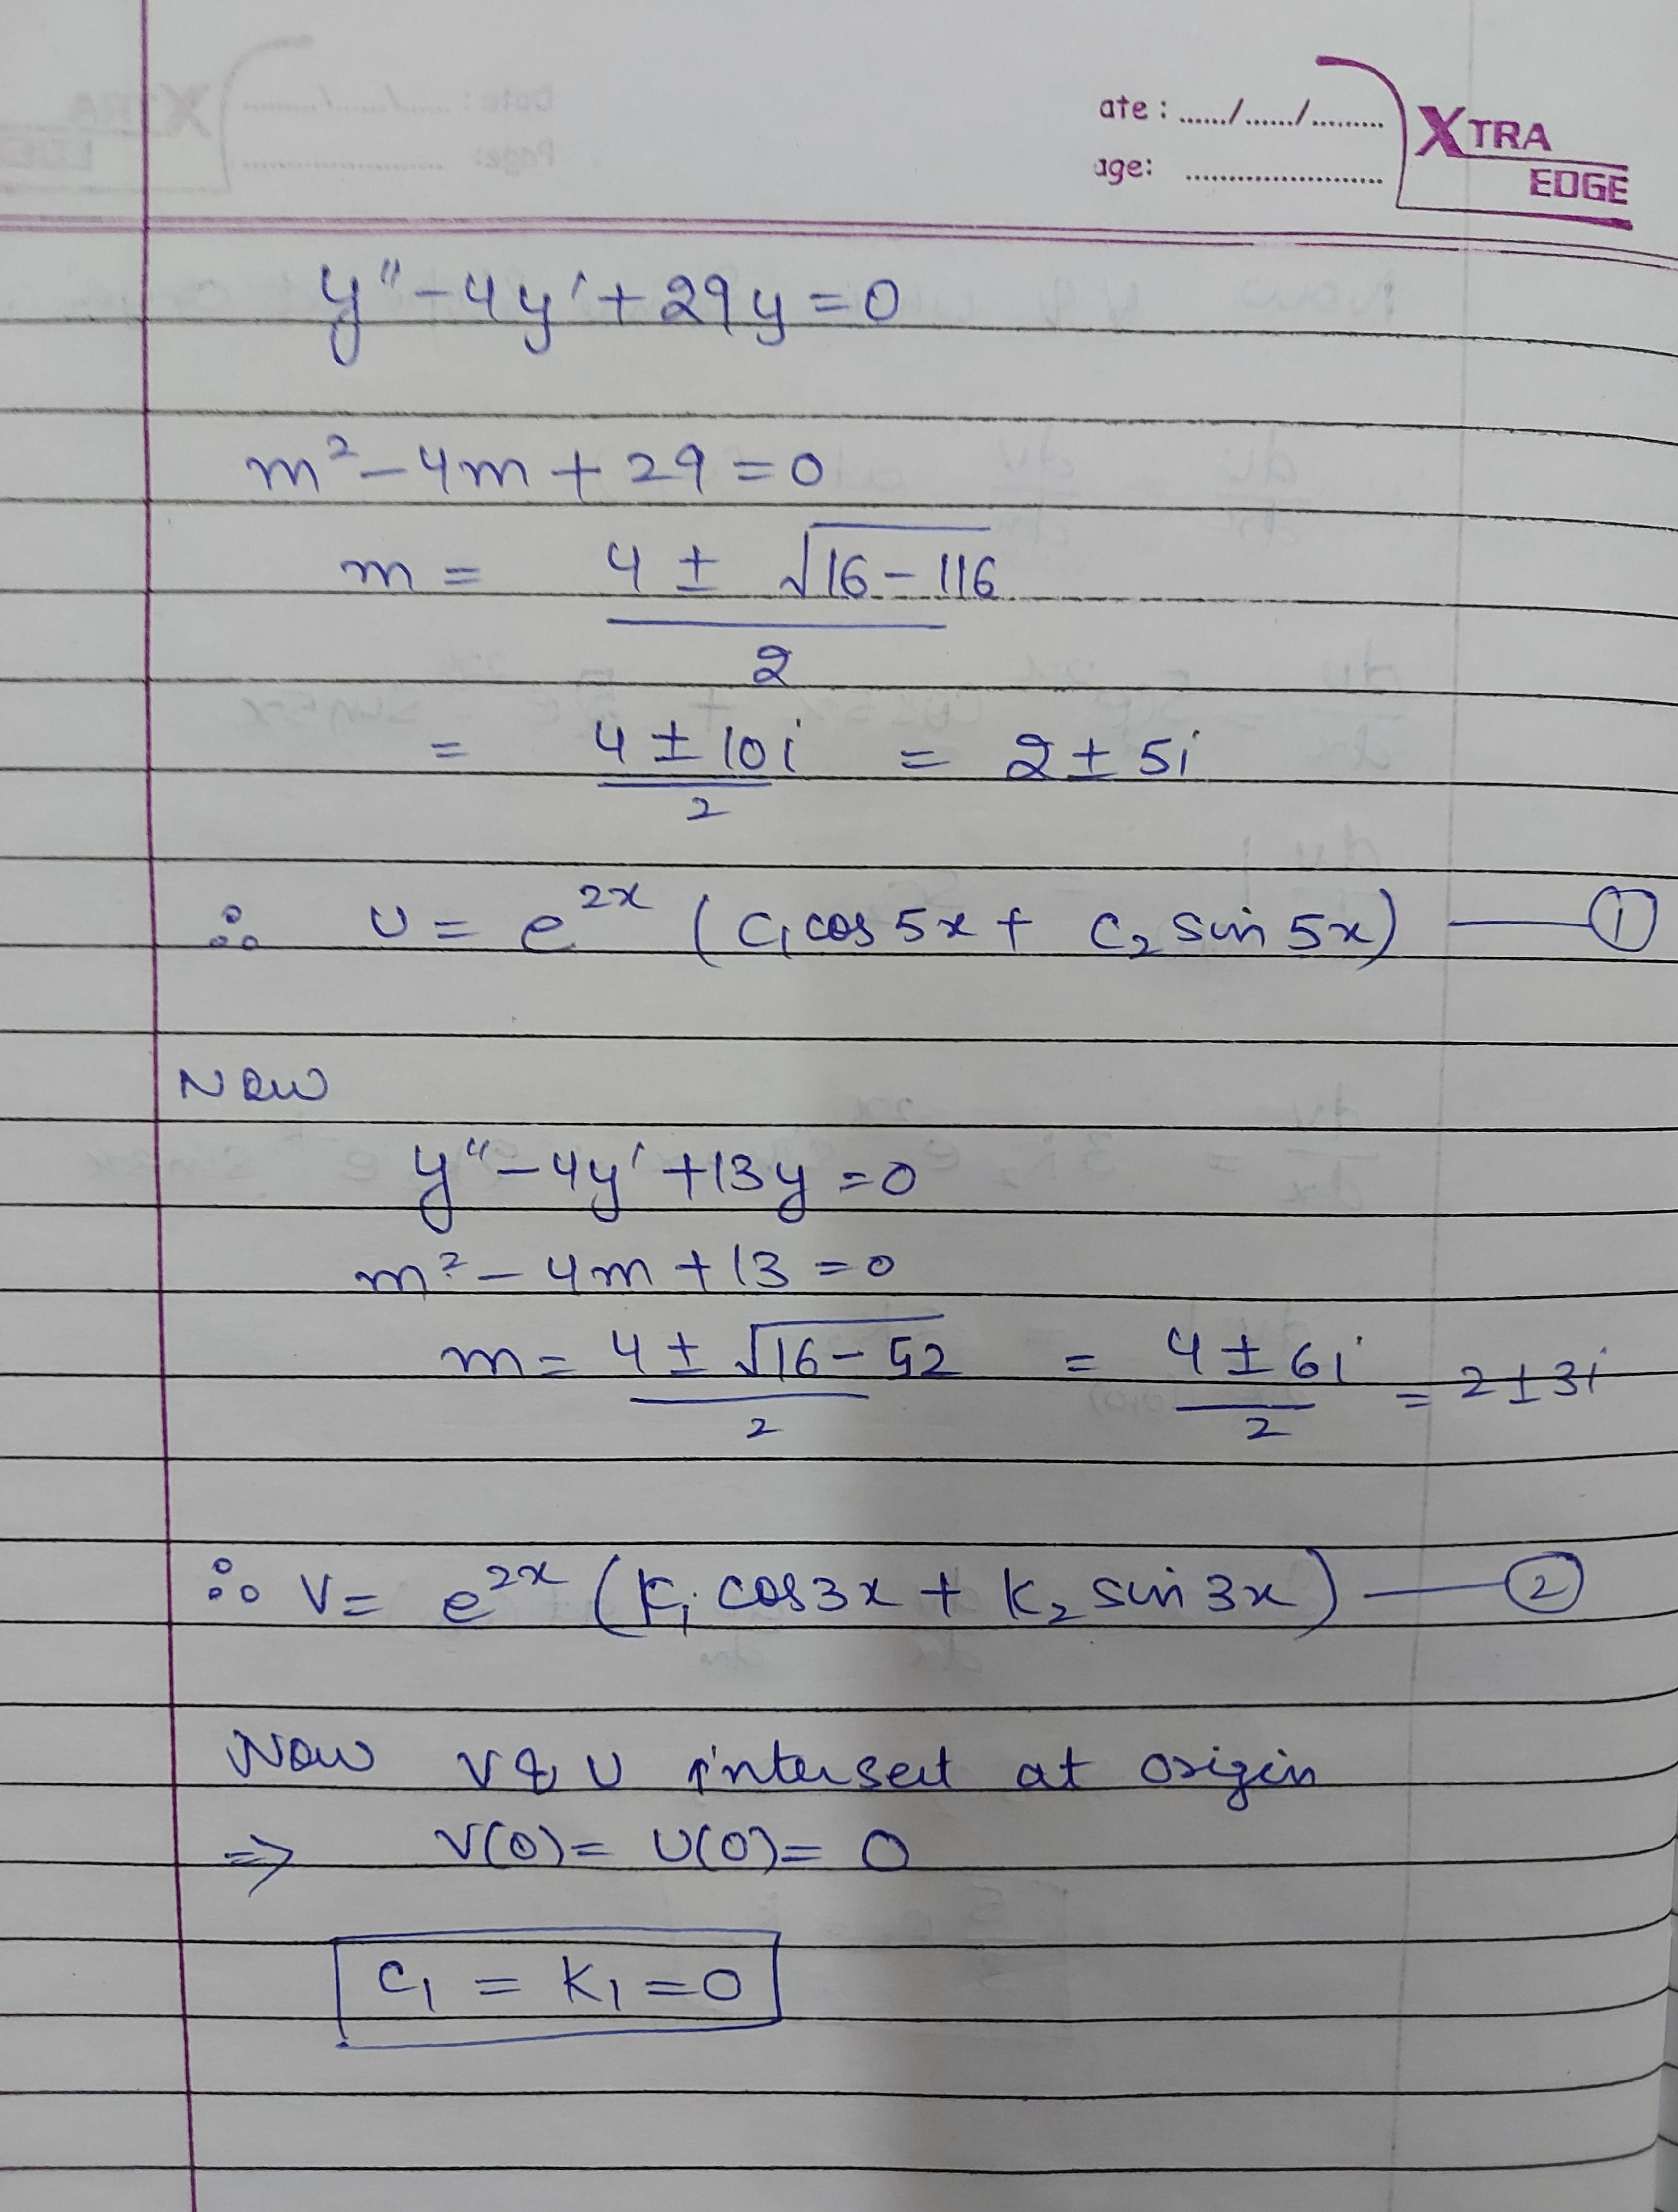 ate : ....../....../.........
age: ........................
XTRA
EDGE
y'' - 4y' + 29y = 0
m² - 4m + 29 = 0
m = 4 ± √16 - 116
2
= 4 ± 10i = 2 ± 5i
2
∴ U = e^2x (C₁ cos 5x + C₂ sin 5x) — ①
Now
y'' - 4y' + 13y = 0
m² - 4m + 13 = 0
m = 4 ± √16 - 52 = 4 ± 6i = 2 ± 3i
2 2
∴ V = e^2x (K₁ cos 3x + K₂ sin 3x) — ②
Now V & U intersect at origin
⇒ V(0) = U(0) = 0
C₁ = K₁ = 0